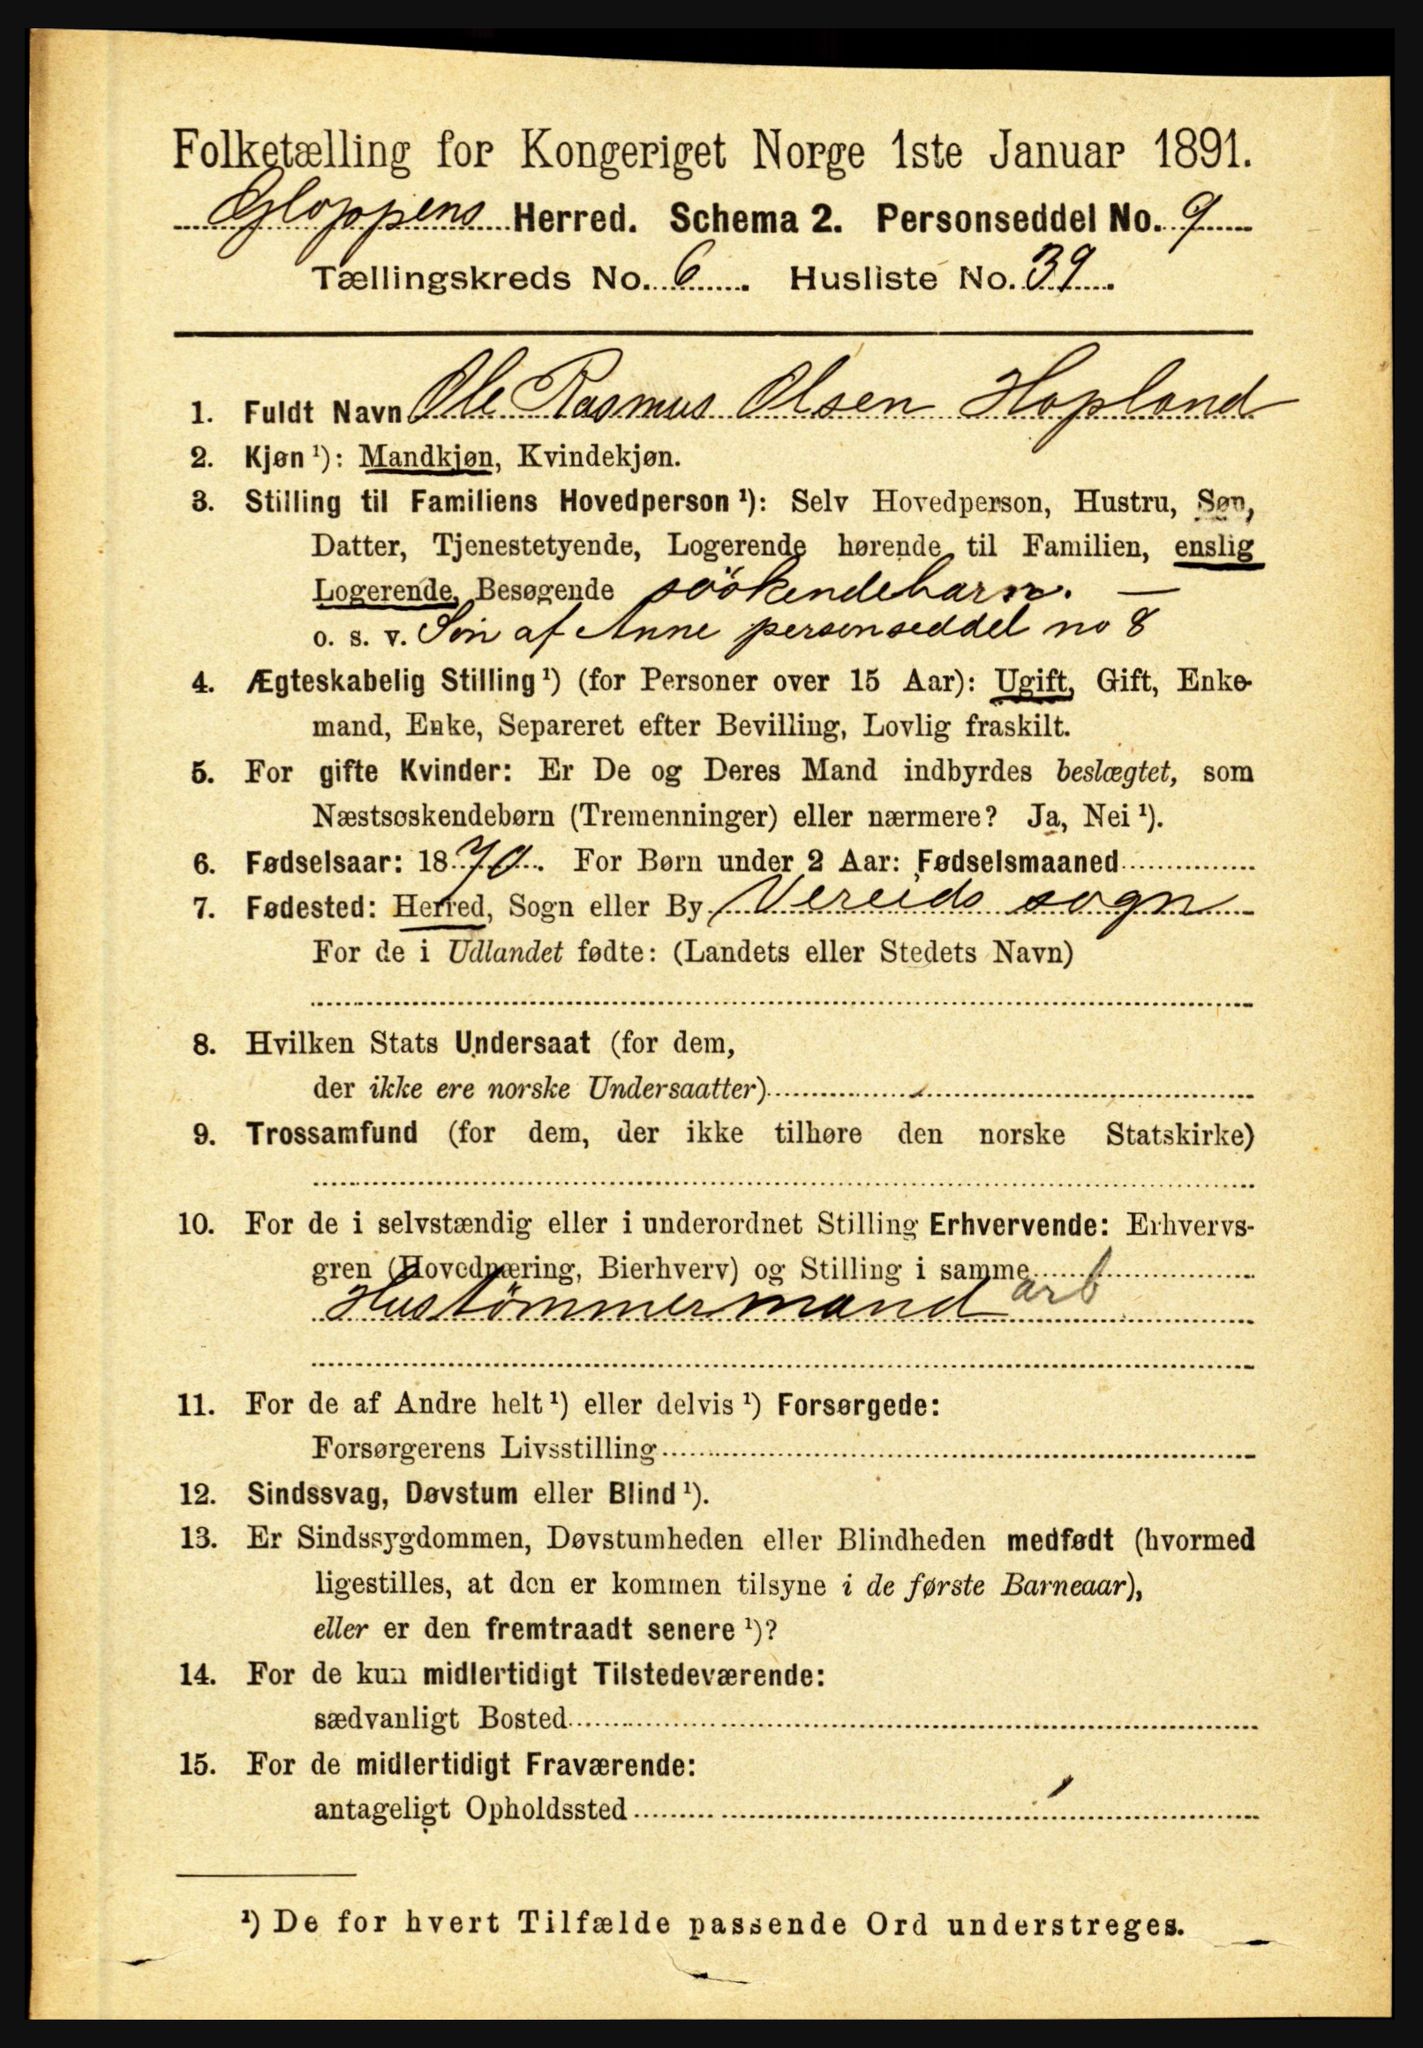 Folketælling for Kongeriget Norge 1ste Januar 1891.
Gloppens Herred. Schema 2. Personseddel No. 9
Tællingskreds No. 6. Husliste No. 39.
1. Fuldt Navn Ole Rasmus Olsen Hopland
2. Kjøn ¹): Mandkjøn, Kvindekjøn.
3. Stilling til Familiens Hovedperson ¹): Selv Hovedperson, Hustru, Søn,
Datter, Tjenestetyende, Logerende hørende til Familien, enslig
Logerende, Besøgende söskendebarn. —
o. s. v. Søn af Anne personseddel no 8
4. Ægteskabelig Stilling ¹) (for Personer over 15 Aar): Ugift, Gift, Enke-
mand, Enke, Separeret efter Bevilling, Lovlig fraskilt.
5. For gifte Kvinder: Er De og Deres Mand indbyrdes beslægtet, som
Næstsøskendebørn (Tremenninger) eller nærmere? Ja, Nei ¹).
6. Fødselsaar: 1870. For Børn under 2 Aar: Fødselsmaaned
7. Fødested: Herred, Sogn eller By Vereids sogn
For de i Udlandet fødte: (Landets eller Stedets Navn)
8. Hvilken Stats Undersaat (for dem,
der ikke ere norske Undersaatter)
9. Trossamfund (for dem, der ikke tilhøre den norske Statskirke)
10. For de i selvstændig eller i underordnet Stilling Erhvervende: Erhvervs-
gren (Hovednæring, Bierhverv) og Stilling i samme
Hustømmermand arb
11. For de af Andre helt ¹) eller delvis ¹) Forsørgede:
Forsørgerens Livsstilling
12. Sindssvag, Døvstum eller Blind ¹).
13. Er Sindssygdommen, Døvstumheden eller Blindheden medfødt (hvormed
ligestilles, at den er kommen tilsyne i de første Barneaar),
eller er den fremtraadt senere ¹)?
14. For de kun midlertidigt Tilstedeværende:
sædvanligt Bosted
15. For de midlertidigt Fraværende:
antageligt Opholdssted
¹) De for hvert Tilfælde passende Ord understreges.